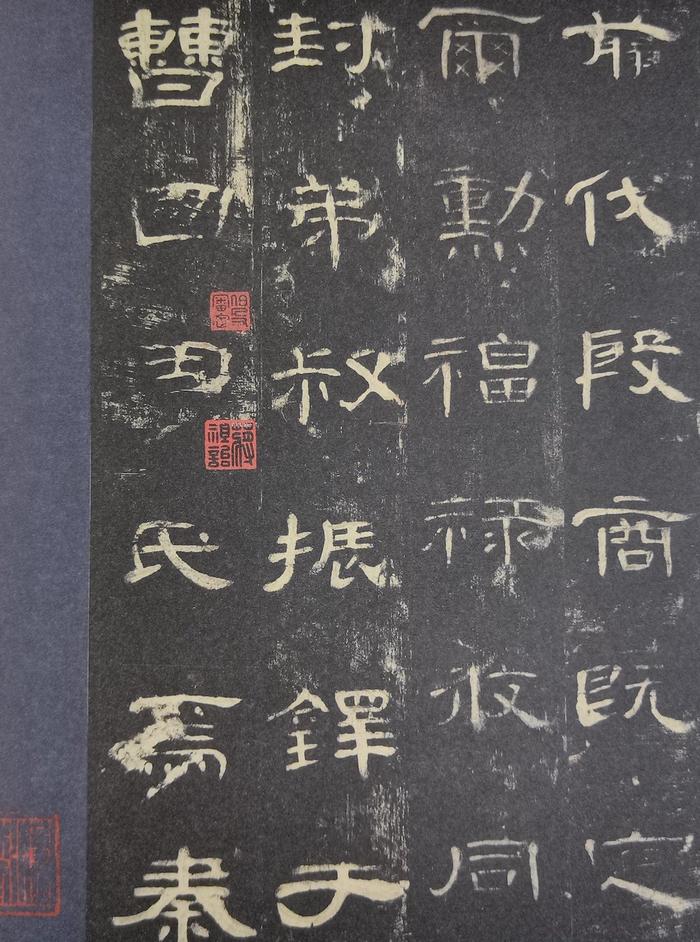 前伐殷商既定
爾勳福祿攸同
封弟叔振鐸于
曹國因氏焉秦